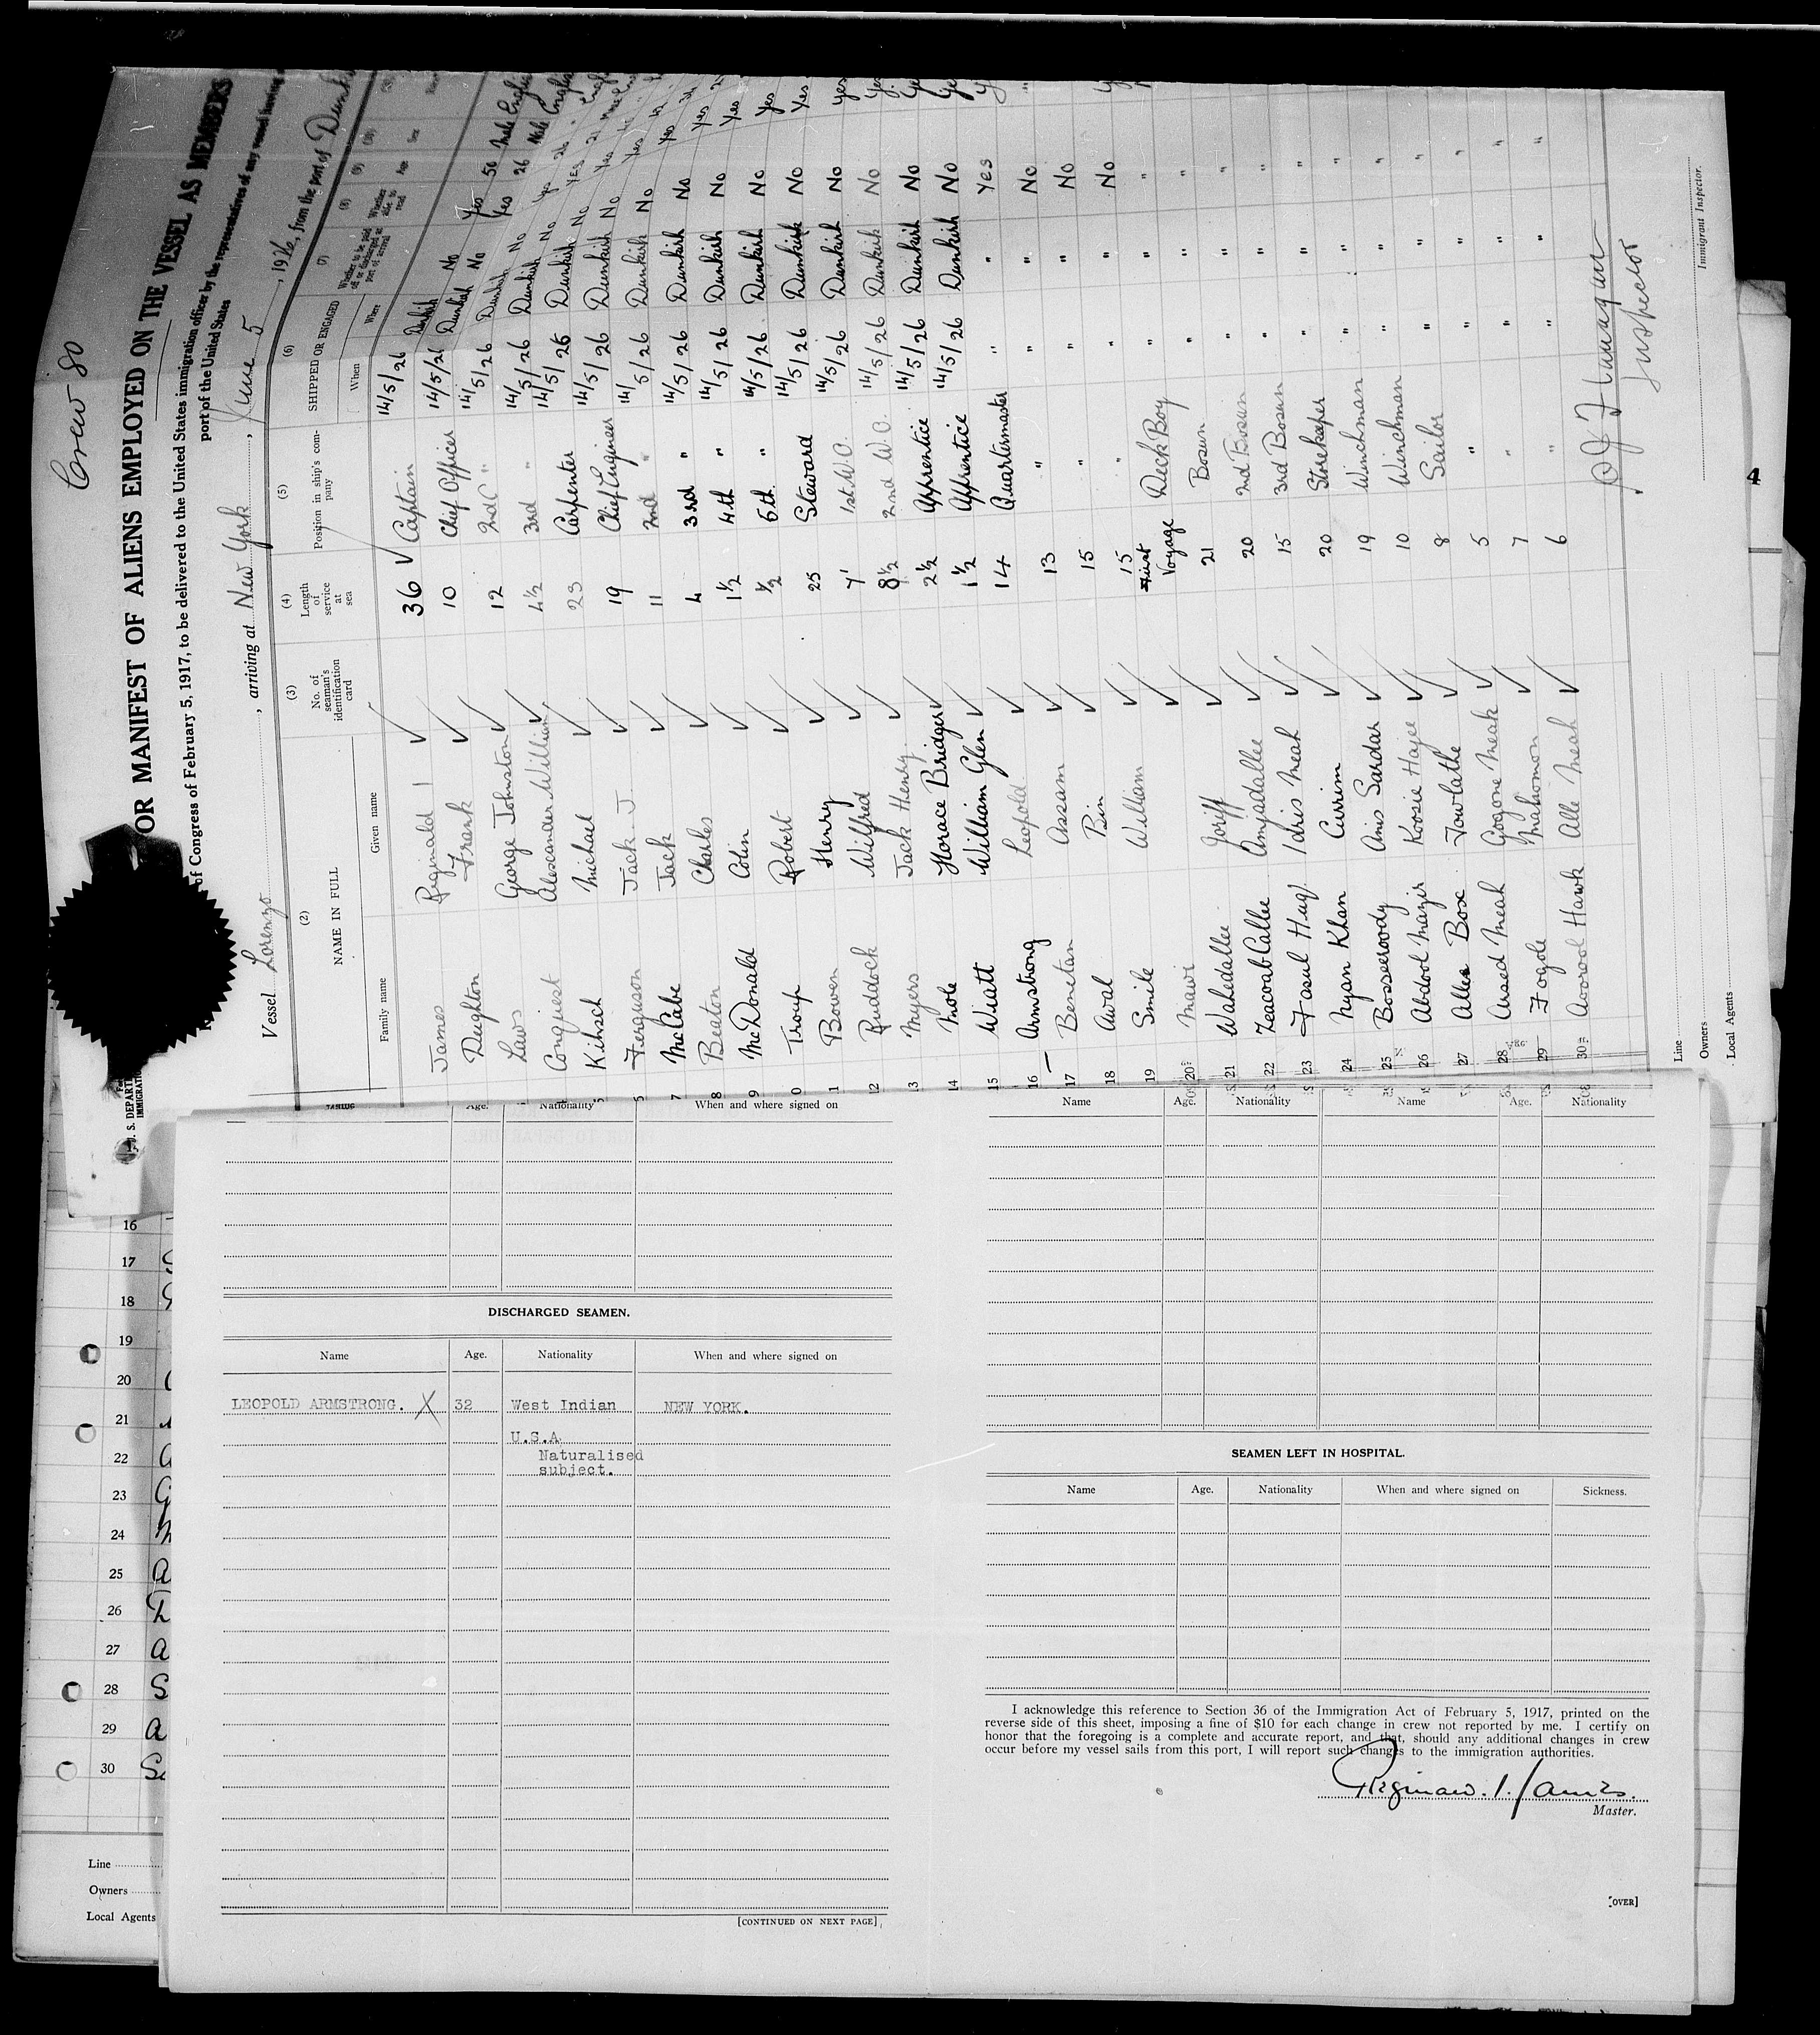 Crew 80
OR MANIFEST OF ALIENS EMPLOYED ON THE VESSEL AS MEMBERS
of Congress of February 5, 1917, to be delivered to the United States immigration officer by the representatives of any vessel having
port of the United States
Vessel Lorenzo, arriving at New York, June 5, 1926, from the port of
(2) (3) (4) (5) (6) (7) (8) (9) (10)
NAME IN FULL No. of seaman's identification card Length of service at sea Position in ship's company SHIPPED OR ENGAGED Whether to be paid off or discharged at port of arrival Whether able to read Age Sex
Family name Given name When Where
James Reginald I 36 Captain 14/5/26 Dunkirk No Yes 50 Male English
Deighton Frank 10 Chief Officer 14/5/26 Dunkirk No Yes 26 Male English
Laws George Johnston 12 2nd " 14/5/26 Dunkirk No Yes
Conquest Alexander William 4½ 3rd " 14/5/26 Dunkirk No Yes
Kihsch Michael 23 Carpenter 14/5/26 Dunkirk No Yes
Ferguson Jack J 19 Chief Engineer 14/5/26 Dunkirk No Yes
7 McCabe Jack 11 2nd " 14/5/26 Dunkirk No Yes
8 Beaton Charles 4 3rd " 14/5/26 Dunkirk No Yes
9 McDonald Colin 1½ 4th " 14/5/26 Dunkirk No Yes
0 Troup Robert ½ 5th " 14/5/26 Dunkirk No Yes
1 Bowen Henry 25 Steward 14/5/26 Dunkirk No Yes
12 Ruddock Wilfred 7 1st W.O. 14/5/26 Dunkirk No Yes
13 Myers Jack Henry 8½ 2nd W.O. 14/5/26 Dunkirk No
14 Mole Horace Bridger 2½ Apprentice 14/5/26 Dunkirk No
15 Wiatt William Glen 1½ Apprentice 14/5/26 Dunkirk No
16 Armstrong Leopold 14 Quartermaster " " Yes
17 Benetan Assam 13 " " " No
18 Awal Bin 15 " " " No
19 Smile William 15 " " " No
20 Mawi First Voyage Deck Boy " " "
21 Wahedallee Joriff 21 Bosun " " "
22 Zeacoab Callee Amjadallee 20 2nd Bosun " " "
23 Fasul Huq Idris Meah 15 3rd Bosun " " "
24 Nyan Khan Currim 20 Storekeeper " " "
25 Bosseeroody Anis Sardar 19 Winchman " " "
26 Abdool Mazir Koosie Hajee 10 Winchman " " "
27 Allee Box Towlathe 8 Sailor " " "
28 Arsed Meah Gogone Meah 5 " " " "
29 Fogole Mahomon 7 " " " "
30 Hawk Alle Meah 6 " " " "
Inspector
Immigrant Inspector.
Line
Owners
Local Agents
U. S. DEPART
IMMIGRAT
Age. Nationality When and where signed on
DISCHARGED SEAMEN.
Name Age. Nationality When and where signed on
LEOPOLD ARMSTRONG. X 32 West Indian NEW YORK.
U.S.A.
Naturalised
subject.
[CONTINUED ON NEXT PAGE]
Name Age. Nationality Name Age. Nationality
SEAMEN LEFT IN HOSPITAL.
Name Age. Nationality When and where signed on Sickness.
I acknowledge this reference to Section 36 of the Immigration Act of February 5, 1917, printed on the
reverse side of this sheet, imposing a fine of $10 for each change in crew not reported by me. I certify on
honor that the foregoing is a complete and accurate report, and that, should any additional changes in crew
occur before my vessel sails from this port, I will report such changes to the immigration authorities.
Reginald. I. James.
Master.
[OVER]
16
17
18
19
20
21
22
23
24
25
26
27
28
29
30
Line
Owners
Local Agents